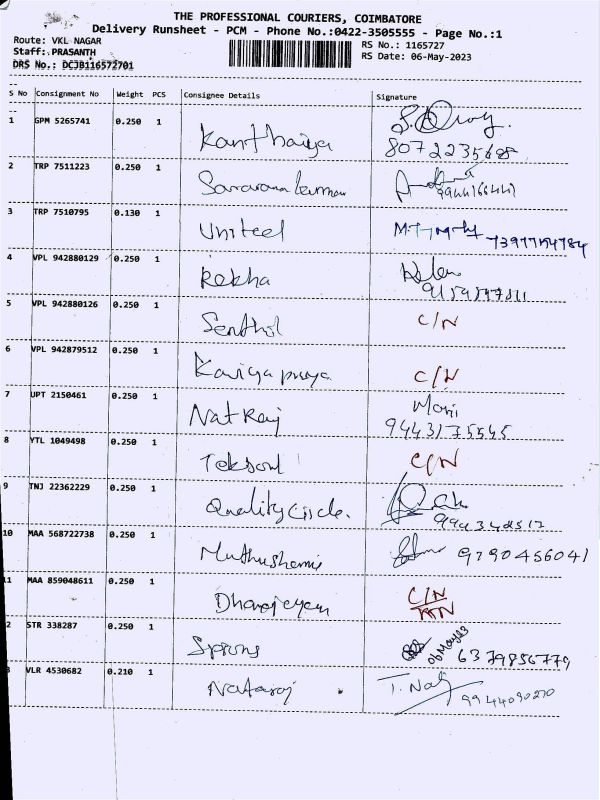 THE PROFESSIONAL COURIERS, COIMBATORE
Delivery Runsheet - PCM - Phone No.:0422-3505555 - Page No.:1
Route: VKL NAGAR
Staff: PRASANTH
DRS No.: DCJB116572701
RS No.: 1165727
RS Date: 06-May-2023
S No Consignment No Weight PCS Consignee Details Signature
1 GPM 5265741 0.250 1 Kanthaiya
2 TRP 7511223 0.250 1
3 TRP 7510795 0.130 1 United
4 VPL 942880129 0.250 1 Rekha
5 VPL 942880126 0.250 1 Senthil C/N
6 VPL 942879512 0.250 1 C/N
7 UPT 2150461 0.250 1 Natraj Mani
9443135545
8 YTL 1049498 0.250 1 Teksoul C/N
9 TNJ 22362229 0.250 1 Quality Circle.
10 MAA 568722738 0.250 1 9790456041
11 MAA 859048611 0.250 1 C/N
2 STR 338287 0.250 1 06 May 23 6379856779
VLR 4530682 0.210 1 Nataraj T. 9944090270